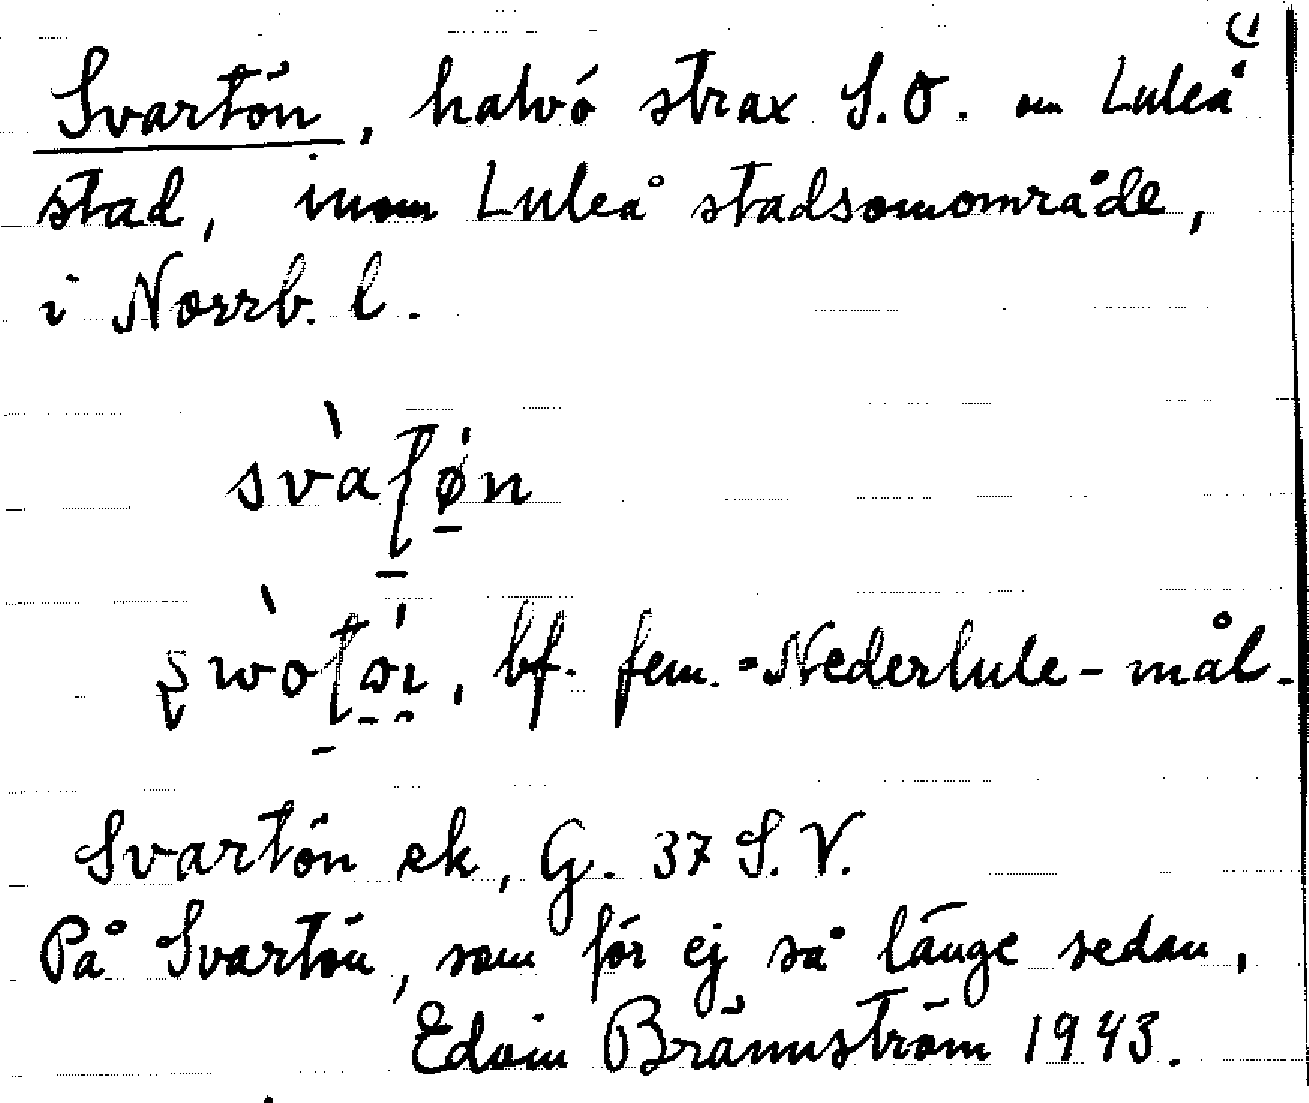 (1
Svartön, halvö strax S.O. om Luleå
stad, inom Luleå stadsomområde,
i Norrb. l.
bf. fem. Nederlule-mål.
Svartön ek, G. 37 S.V.
På Svartön, som för ej så länge sedan,
Edvin Brännström 1943.